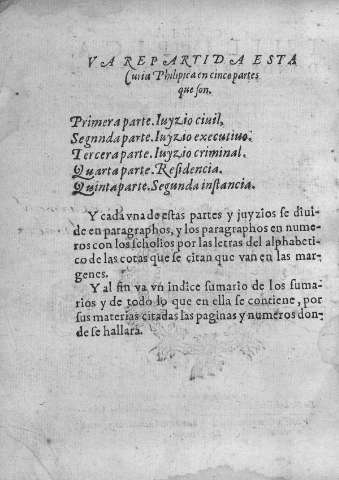 VA REPARTIDA ESTA
Curia Philipica en cinco partes
que son.
Primera parte. Iuyzio ciuil,
Segnnda parte. Iuyzio executiuo.
Tercera parte. Iuyzio criminal.
Quarta parte. Residencia.
Quinta parte. Segunda instancia.
Y cada vna de estas partes y juyzios se diui-
de en paragraphos, y los paragraphos en nume-
ros con los scholios por las letras del alphabeti-
co de las cotas que se citan que van en las mar-
genes.
Y al fin va vn indice sumario de los suma-
rios y de todo lo que en ella se contiene, por
sus materias citadas las paginas y numeros don-
de se hallarà.